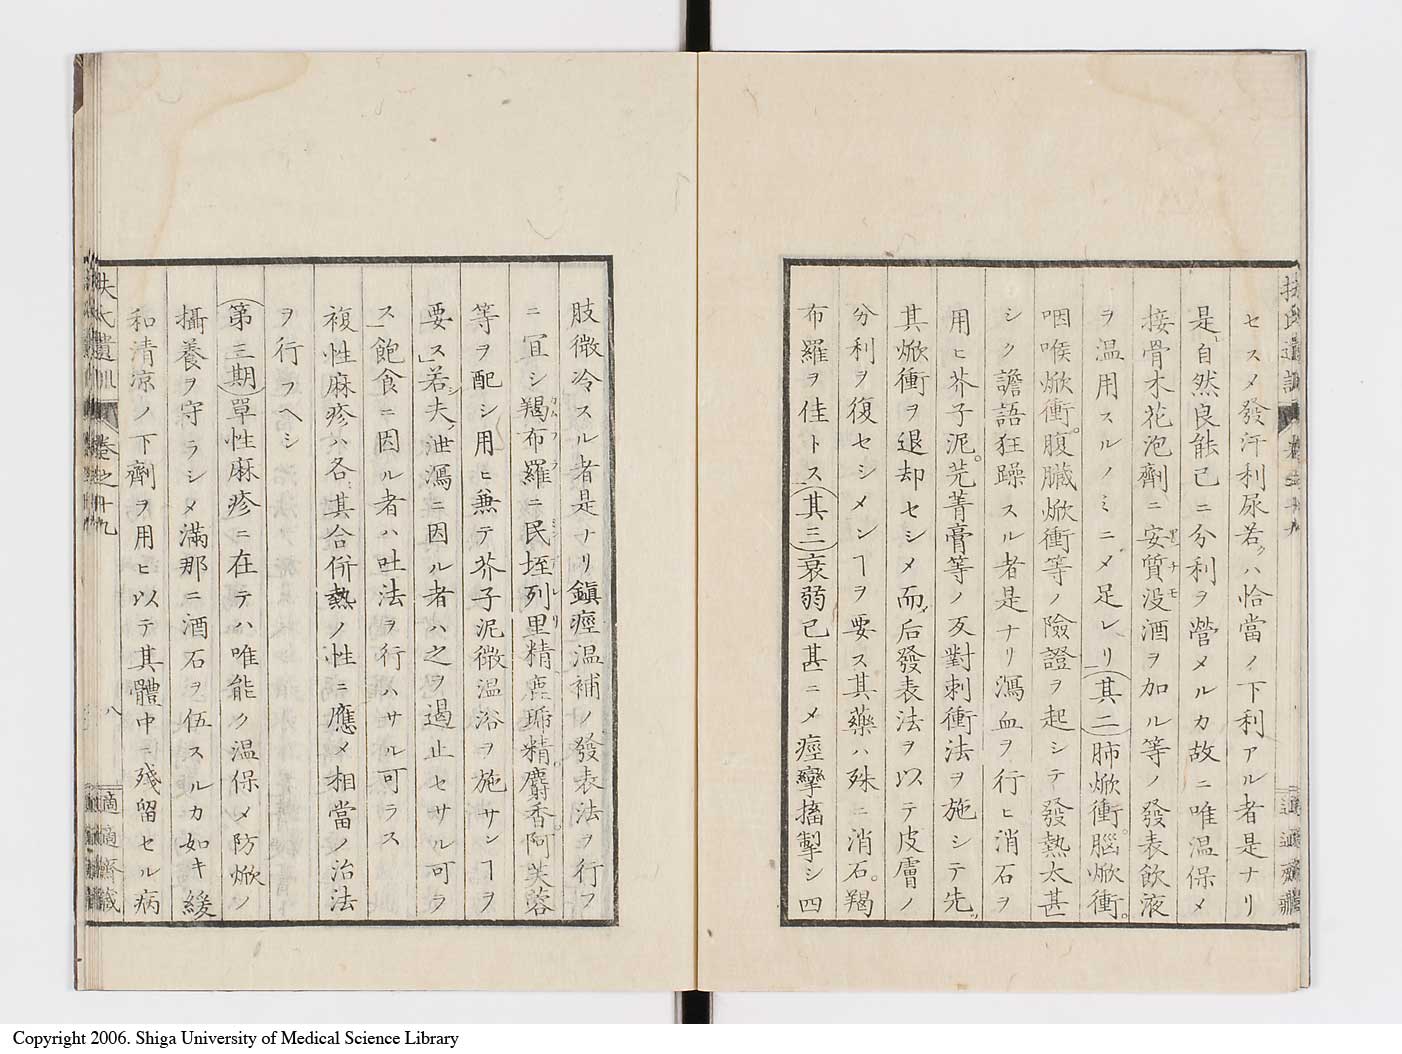 セスメ發汗利尿若クハ恰當ノ下利アル者是ナリ
是自然良能已ニ分利ヲ營メルカ故ニ唯温保メ
接骨木花泡劑ニ安質没酒ヲ加ル等ノ發表飲液
ヲ温用スルノミニメ足レリ(其二)肺焮衝。腦焮衝。
咽喉焮衝。腹臟焮衝等ノ險證ヲ起シテ發熱太甚
シク譫語狂躁スル者是ナリ瀉血ヲ行ヒ消石ヲ
用ヒ芥子泥。芫菁膏等ノ反對刺衝法ヲ施シテ先ツ
其焮衝ヲ退却セシメ而后發表法ヲ以テ皮膚ノ
分利ヲ復セシメンヿヲ要ス其藥ハ殊ニ消石。羯
布羅ヲ佳トス(其三)衰弱已甚ニメ痙攣搐掣シ四
肢微冷スル者是ナリ鎭痙温補ノ發表法ヲ行フ
ニ宜シ羯布羅ニ民垤列里精鹿䖿精麝香。阿芙蓉
等ヲ配シ用ヒ兼テ芥子泥微温浴ヲ施サンヿヲ
要ス」若シ夫泄瀉ニ因ル者ハ之ヲ遏止セサル可ラ
ス」飽食ニ因ル者ハ吐法ヲ行ハサル可ラス
複性麻疹ハ各其合併熱ノ性ニ應メ相當ノ治法
ヲ行フヘシ
(第三期)單性麻疹ニ在テハ唯能ク温保メ防焮ノ
攝養ヲ守ラシメ滿那ニ酒石ヲ伍スルカ如キ緩
和清凉ノ下劑ヲ用ヒ以テ其體中ニ殘留セル病
扶氏遺訓 卷之十九 八 適適齋藏
Copyright 2006. Shiga University of Medical Science Library